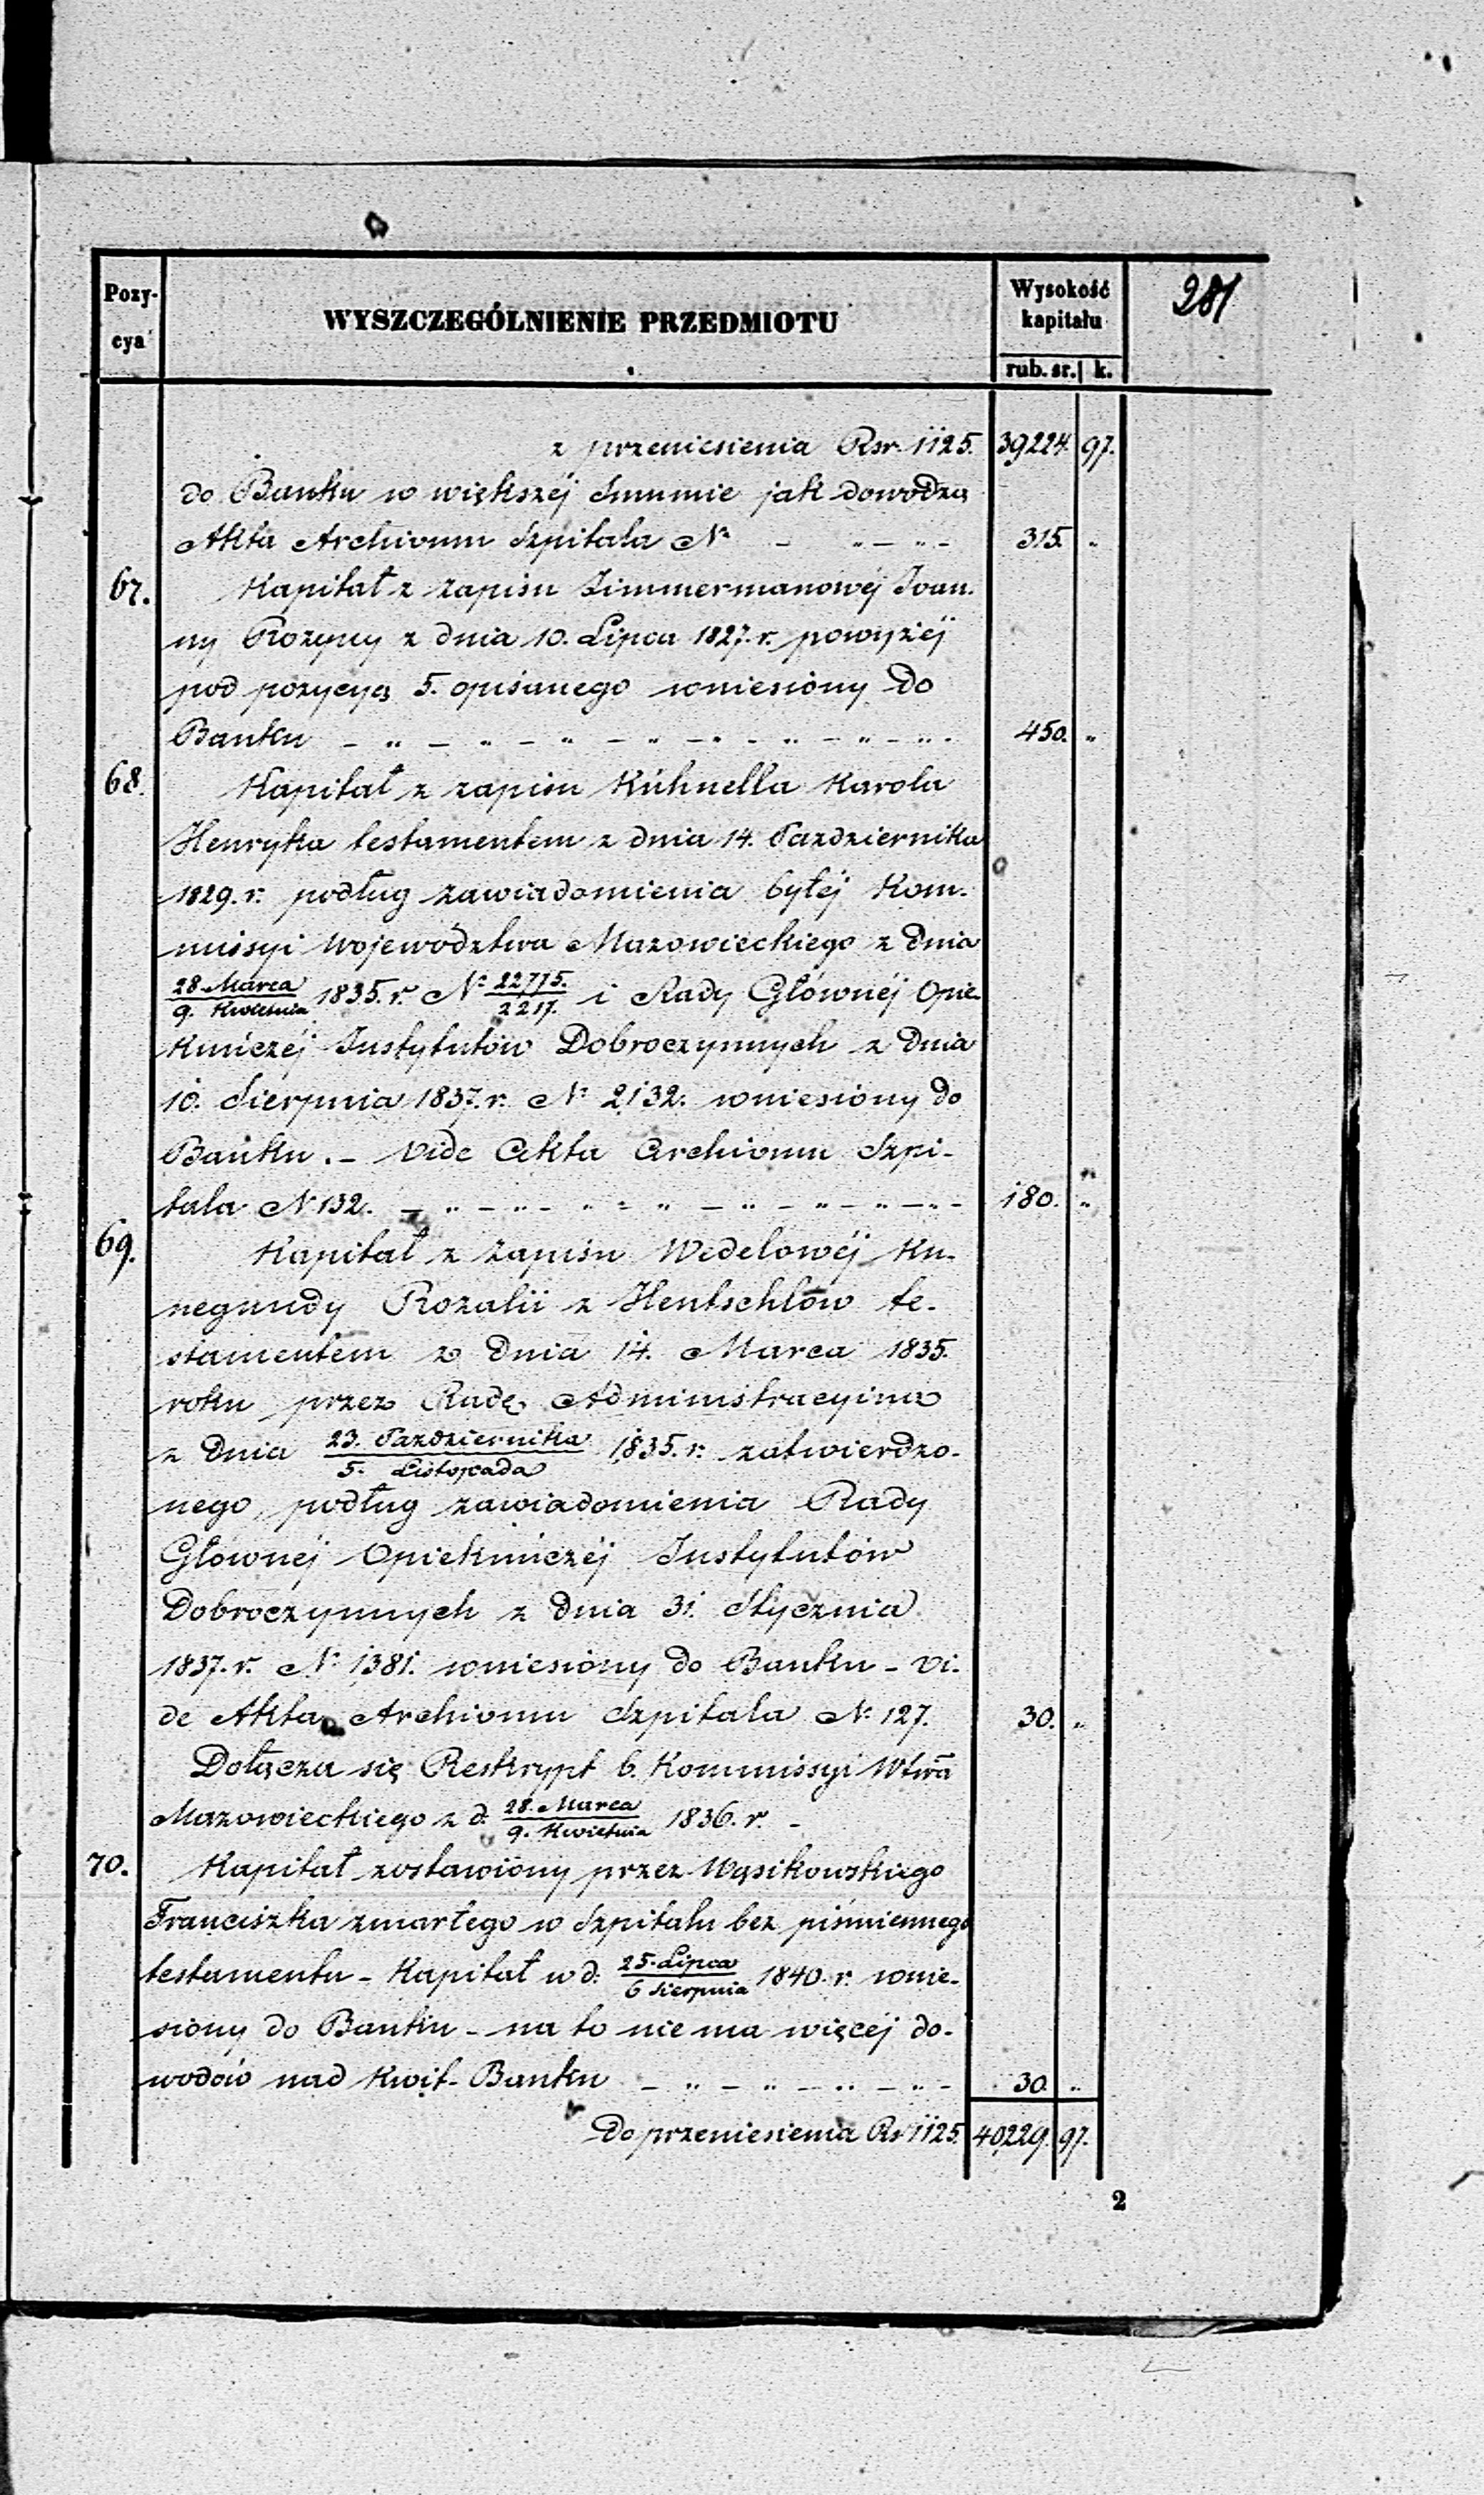 281
Pozy-
cya
WYSZCZEGÓLNIENIE PRZEDMIOTU
Wysokość
kapitału
rub. sr. k.
z przeniesienia Rsr. 1125. 39224. 97.
do Banku w większéj Summie jak dowodzą
Akta Archivum Szpitala Nr - „ - „ - 315. „
67. Kapitał z zapisu Zimmermanowéj Joan-
ny Rozyny z dnia 10. Lipca 1827. r. powyżéj
pod pozycyą 5. opisanego wniesiony do
Banku - „ - „ - „ - „ - „ - „ - „ - „ - 450. „
68. Kapitał z zapisu Kühnella Karola
Henryka testamentem z dnia 14. Pazdziernika
1829. r. podług zawiadomienia byłéj Kom-
missyi Województwa Mazowieckiego z dnia
28 Marca / 9. Kwietnia 1835. r. Nr 22715. / 2217. i Rady Głównéj Opie-
kuńczéj Instytutów Dobroczynnych z dnia
10. Sierpnia 1837. r. Nr 2132. wniesiony do
Banku. - Vide Akta Archivum Szpi-
tala N 132. - „ - „ - „ - „ - „ - „ - „ - 180. „
69. Kapitał z zapisu Wedelowéj Ku-
negundy Rozalii z Hentschlów te-
stamentem z dnia 14. Marca 1835.
roku przez Radę Administracyjna
z dnia 23. Pazdziernika / 5. Listopada 1835. r. zatwierdzo-
nego, podług zawiadomienia Rady
Głównéj Opiekuńczéj Instytutów
Dobroczynnych z dnia 31. Stycznia
1837. r. Nr 1381. wniesiony do Banku - vi-
de Akta Archivum Szpitala Nr 127. 30. „
Dołącza się Reskrypt b. Kommissyi Wtwa
Mazowieckiego z d. 28. Marca / 9. Kwietnia 1836. r. -
70. Kapitał zostawiony przez Wąsikowskiego
Franciszka zmarłego w Szpitalu bez piśmiennego
testamentu - Kapitał w d. 25. Lipca / 6 Sierpnia 1840. r. wnie-
siony do Banku - na to nie ma więcej do-
wodów nad Kwit Banku - „ - „ - „ - „ - 30. „
Do przeniesienia Rs 1125. 40,229. 97.
2